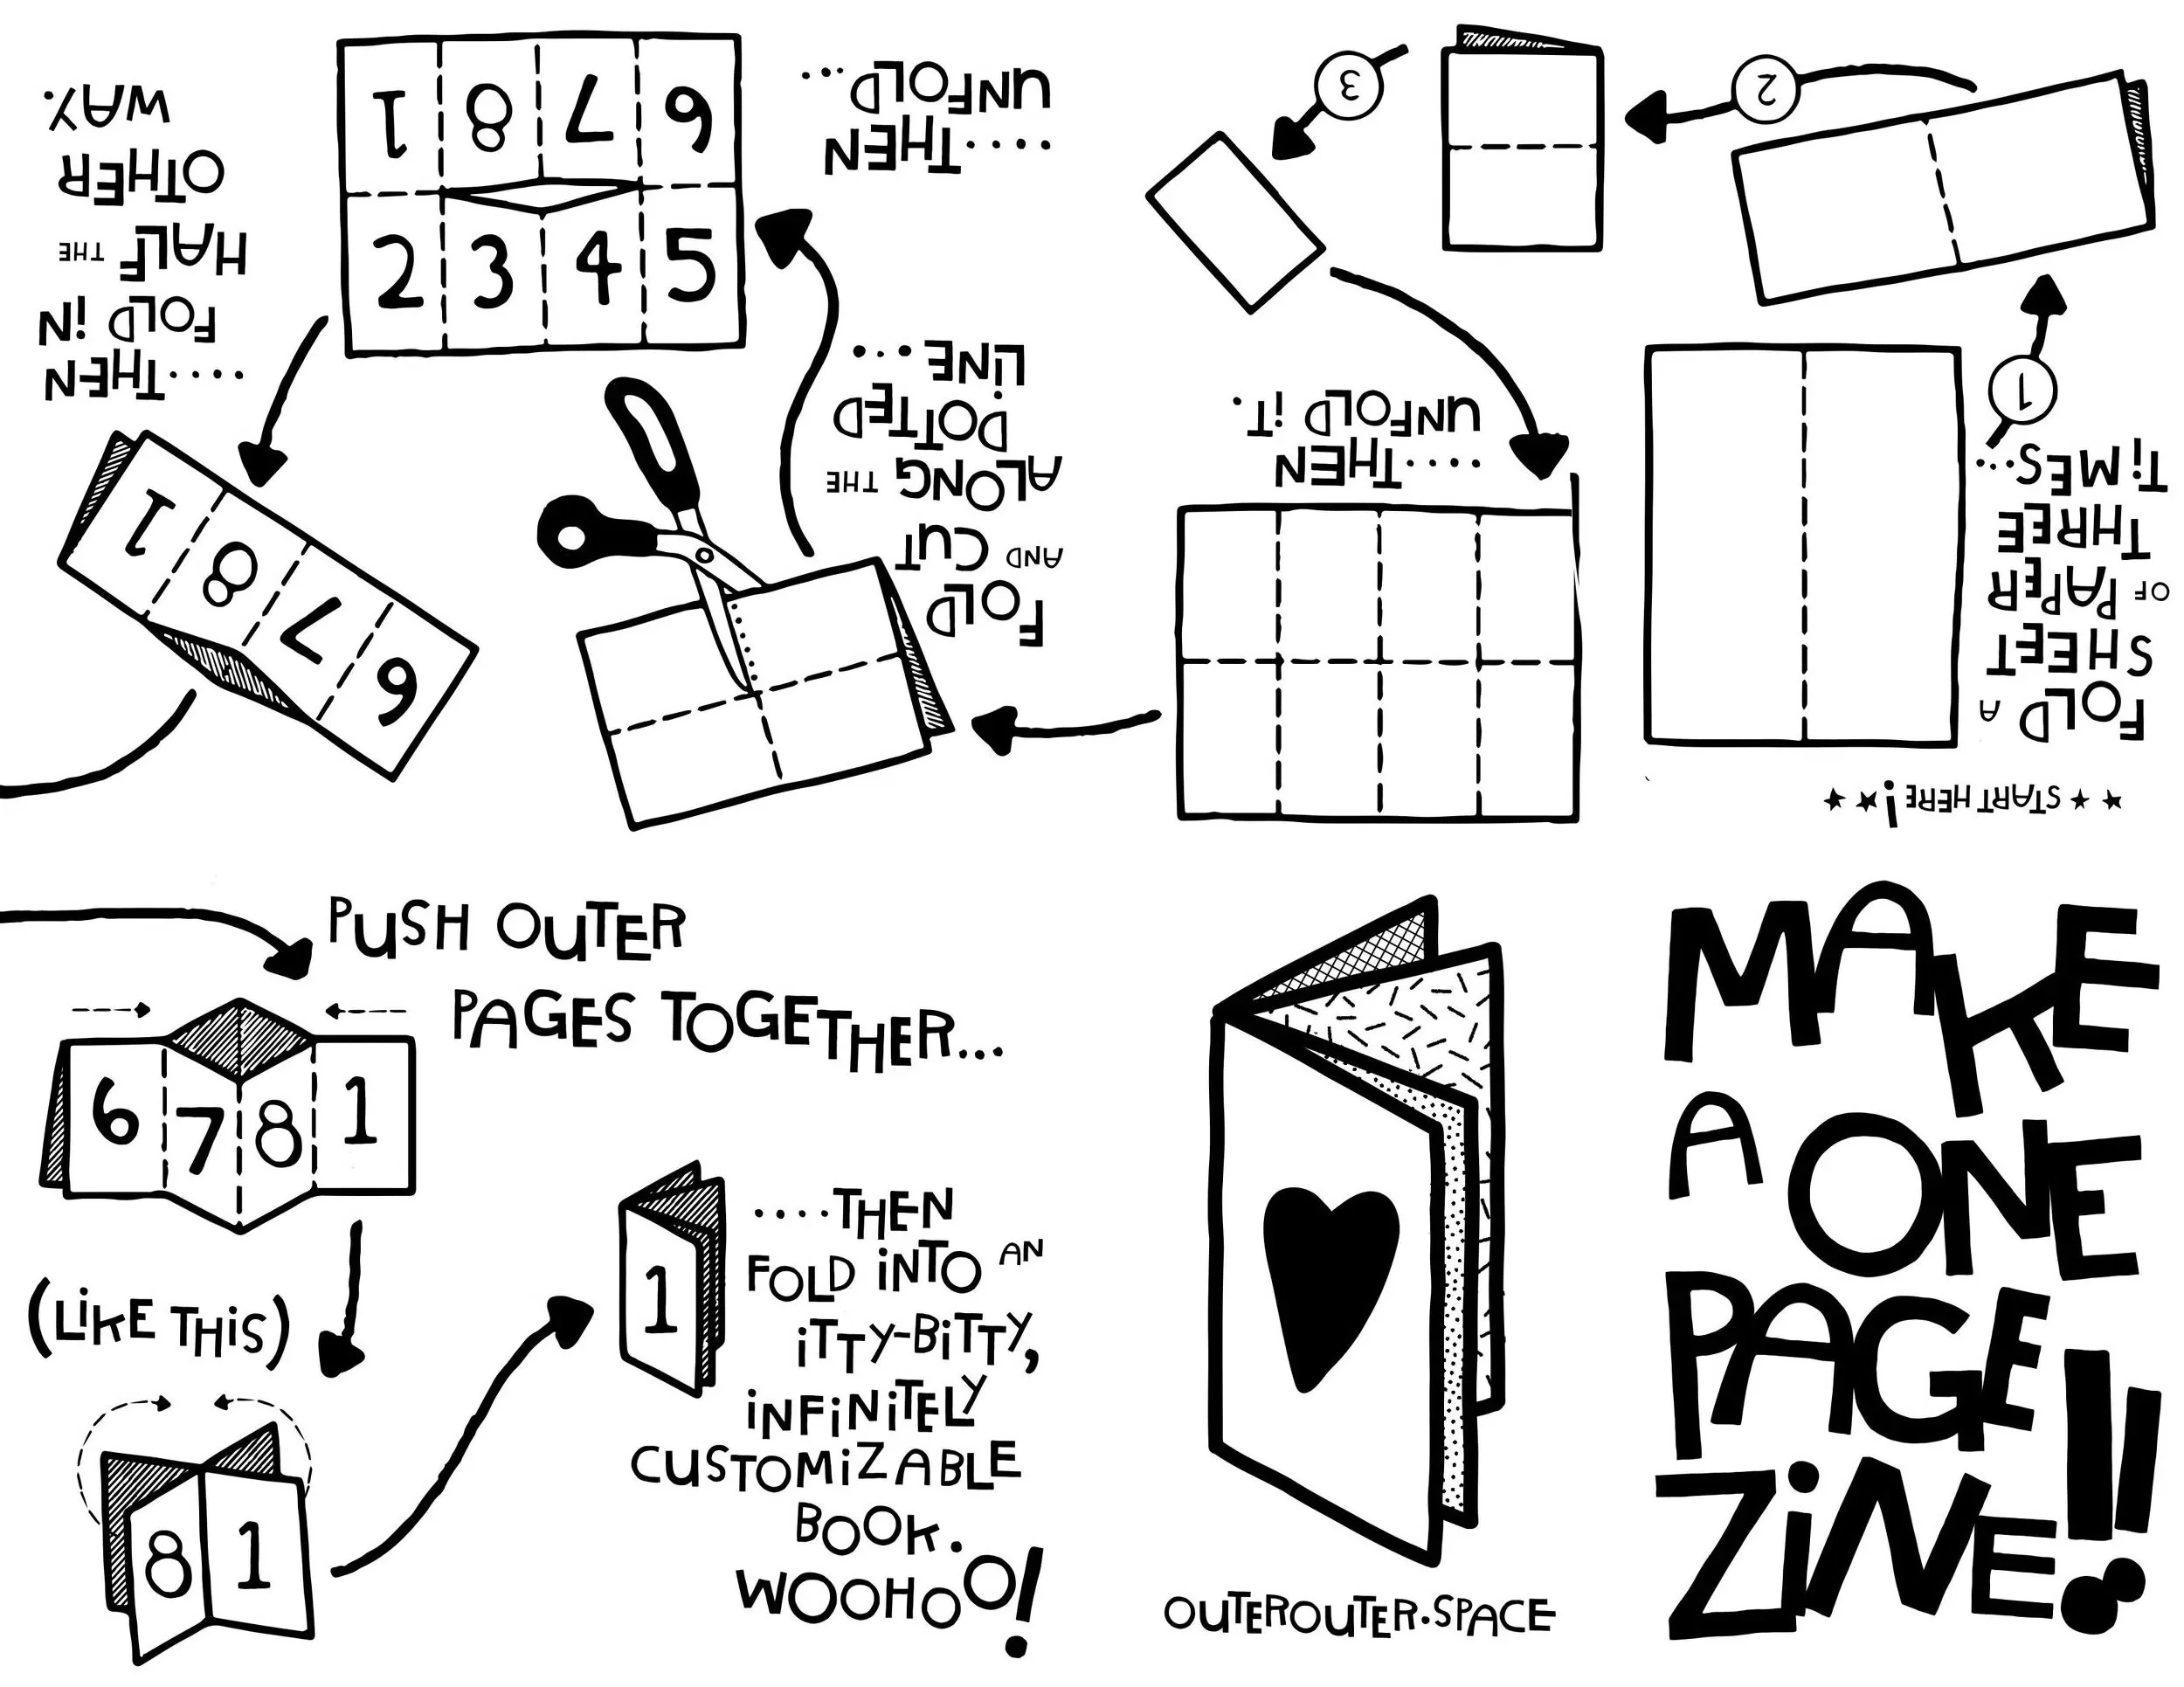 MAKE
A ONE
PAGE
ZiNE!!
★★ START HERE! ★★
FOLD A
SHEET
OF PAPER
THREE
TiMES...
1
2
3
....THEN
UNFOLD iT.
FOLD
AND CUT
ALONG THE
DOTTED
LiNE...
....THEN
UNFOLD...
5 4 3 2
6 7 8 1
....THEN
FOLD iN
HALF THE
OTHER
WAY.
6 7 8 1
PUSH OUTER
PAGES TOGETHER...
6 7 8 1
(LiKE THiS)
8 1
1
....THEN
FOLD iNTO AN
iTTY-BiTTY,
iNFiNiTELY
CUSTOMiZABLE
BOOK.
WOOHOO!
OUTEROUTER.SPACE